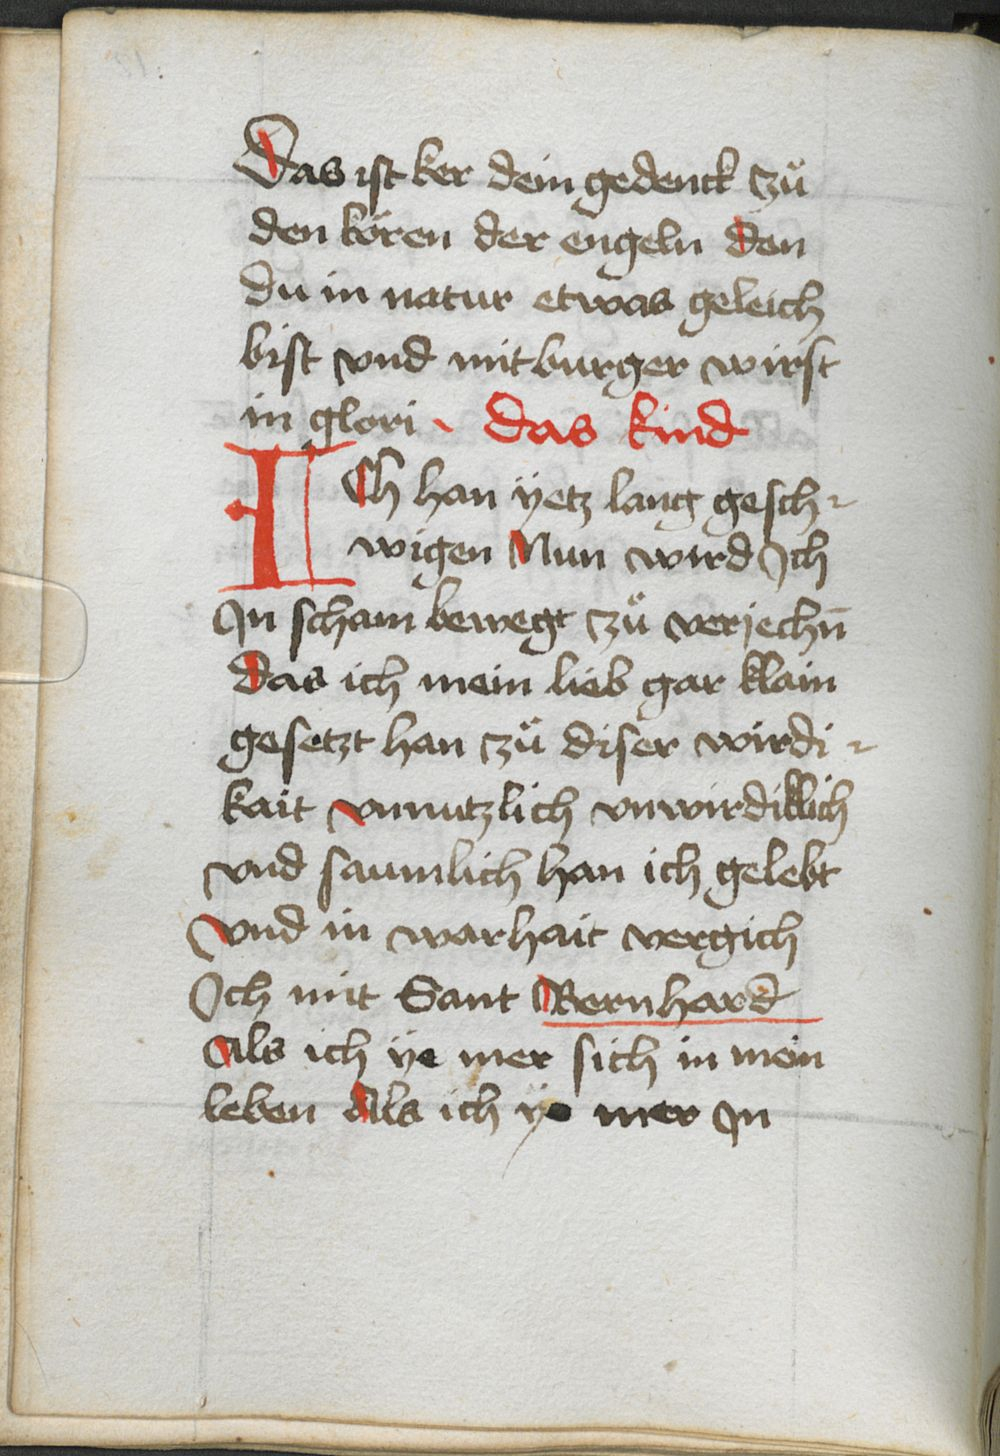 Das ist ker dein gedenck zů
den kören der engeln den
du in natur etwas geleich
bist vnd mitburger wirst
in glori das kind
ICh han ÿetz lang gesch-
wigen Nun wird Ich
In scham bewegt zů verjechn̄
Das ich mein lieb gar klain
gesetzt han zů diser wirdi-
kait vnnutzlich vnwirdiklich
vnd saumlich han ich gelebt
vnd in warhait vergich
Ich mit Sant Bernhard
Als ich ÿe mer sich in mein
leben Als ich ÿe mer In